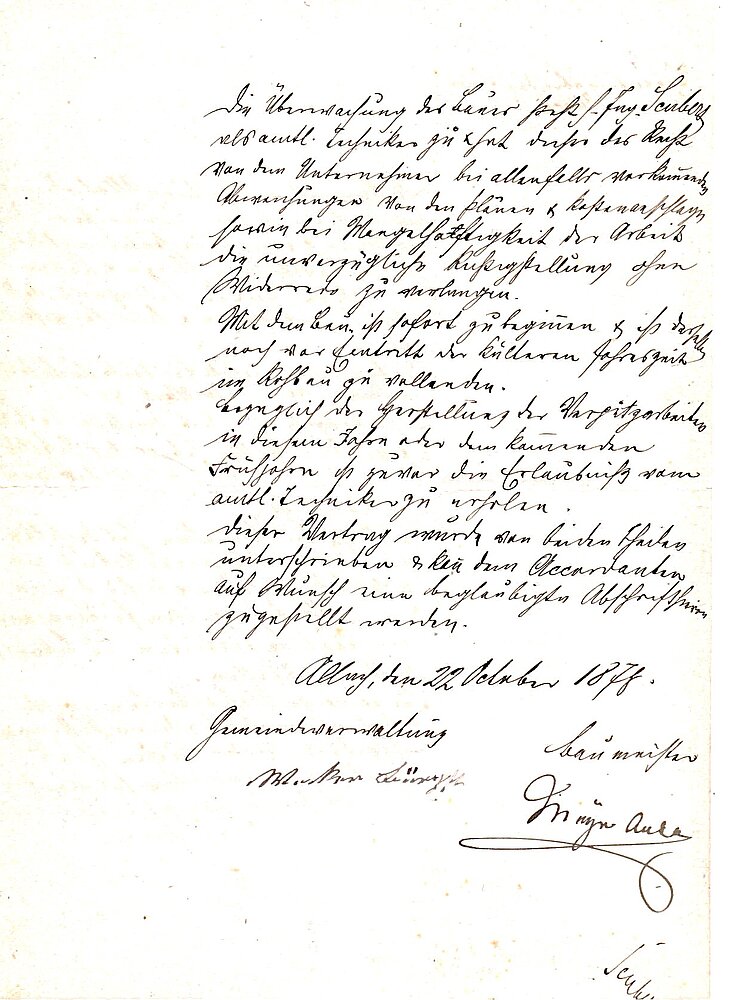 Die Überwachung des Baues steht H. Ing. Seuberg
als amtl. Techniker zu & hat dieser das Recht
von dem Unternehmer bei allenfalls vorkommenden
Abweichungen von den Plänen & Kostenvorschlagen
sowie bei Mangelhaftigkeit der Arbeit
die unverzügliche Richtigstellung ohne
Widerrede zu verlangen.
Mit dem Bau ist sofort zu beginnen & ist derselbe
noch vor Eintritt der kälteren Jahreszeit
im Rohbau zu vollenden.
Bezüglich der Herstellung der Verputzarbeiten
in diesem Jahre oder dem kommenden
Frühjahre ist zuvor die Erlaubniß vom
amtl. Techniker zu erholen.
Dieser Vertrag wurde von beiden Theilen
unterschrieben & kann dem Accordanten
auf Wunsch eine beglaubigte Abschrift hievon
zugestellt werden.
Allach, den 22 October 1878.
Gemeindeverwaltung
Baumeister